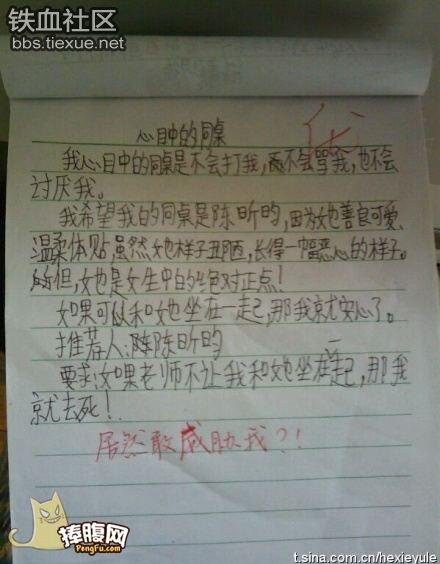 铁血社区
bbs.tiexue.net
心目中的同桌
优
我心目中的同桌是不会打我,不会骂我,也不会
讨厌我。
我希望我的同桌是陈昕昀,因为她善良可爱,
温柔体贴,虽然她样子丑陋,长得一幅恶心的样子。
但,她也是女生中的绝对正点!
如果可以和她坐在一起,那我就安心了。
推荐人:陈昕昀
要求:如果老师不让我和她坐在一起,那我
就去死!
居然敢威胁我?!
捧腹网
PengFu.com
t.sina.com.cn/hexieyule